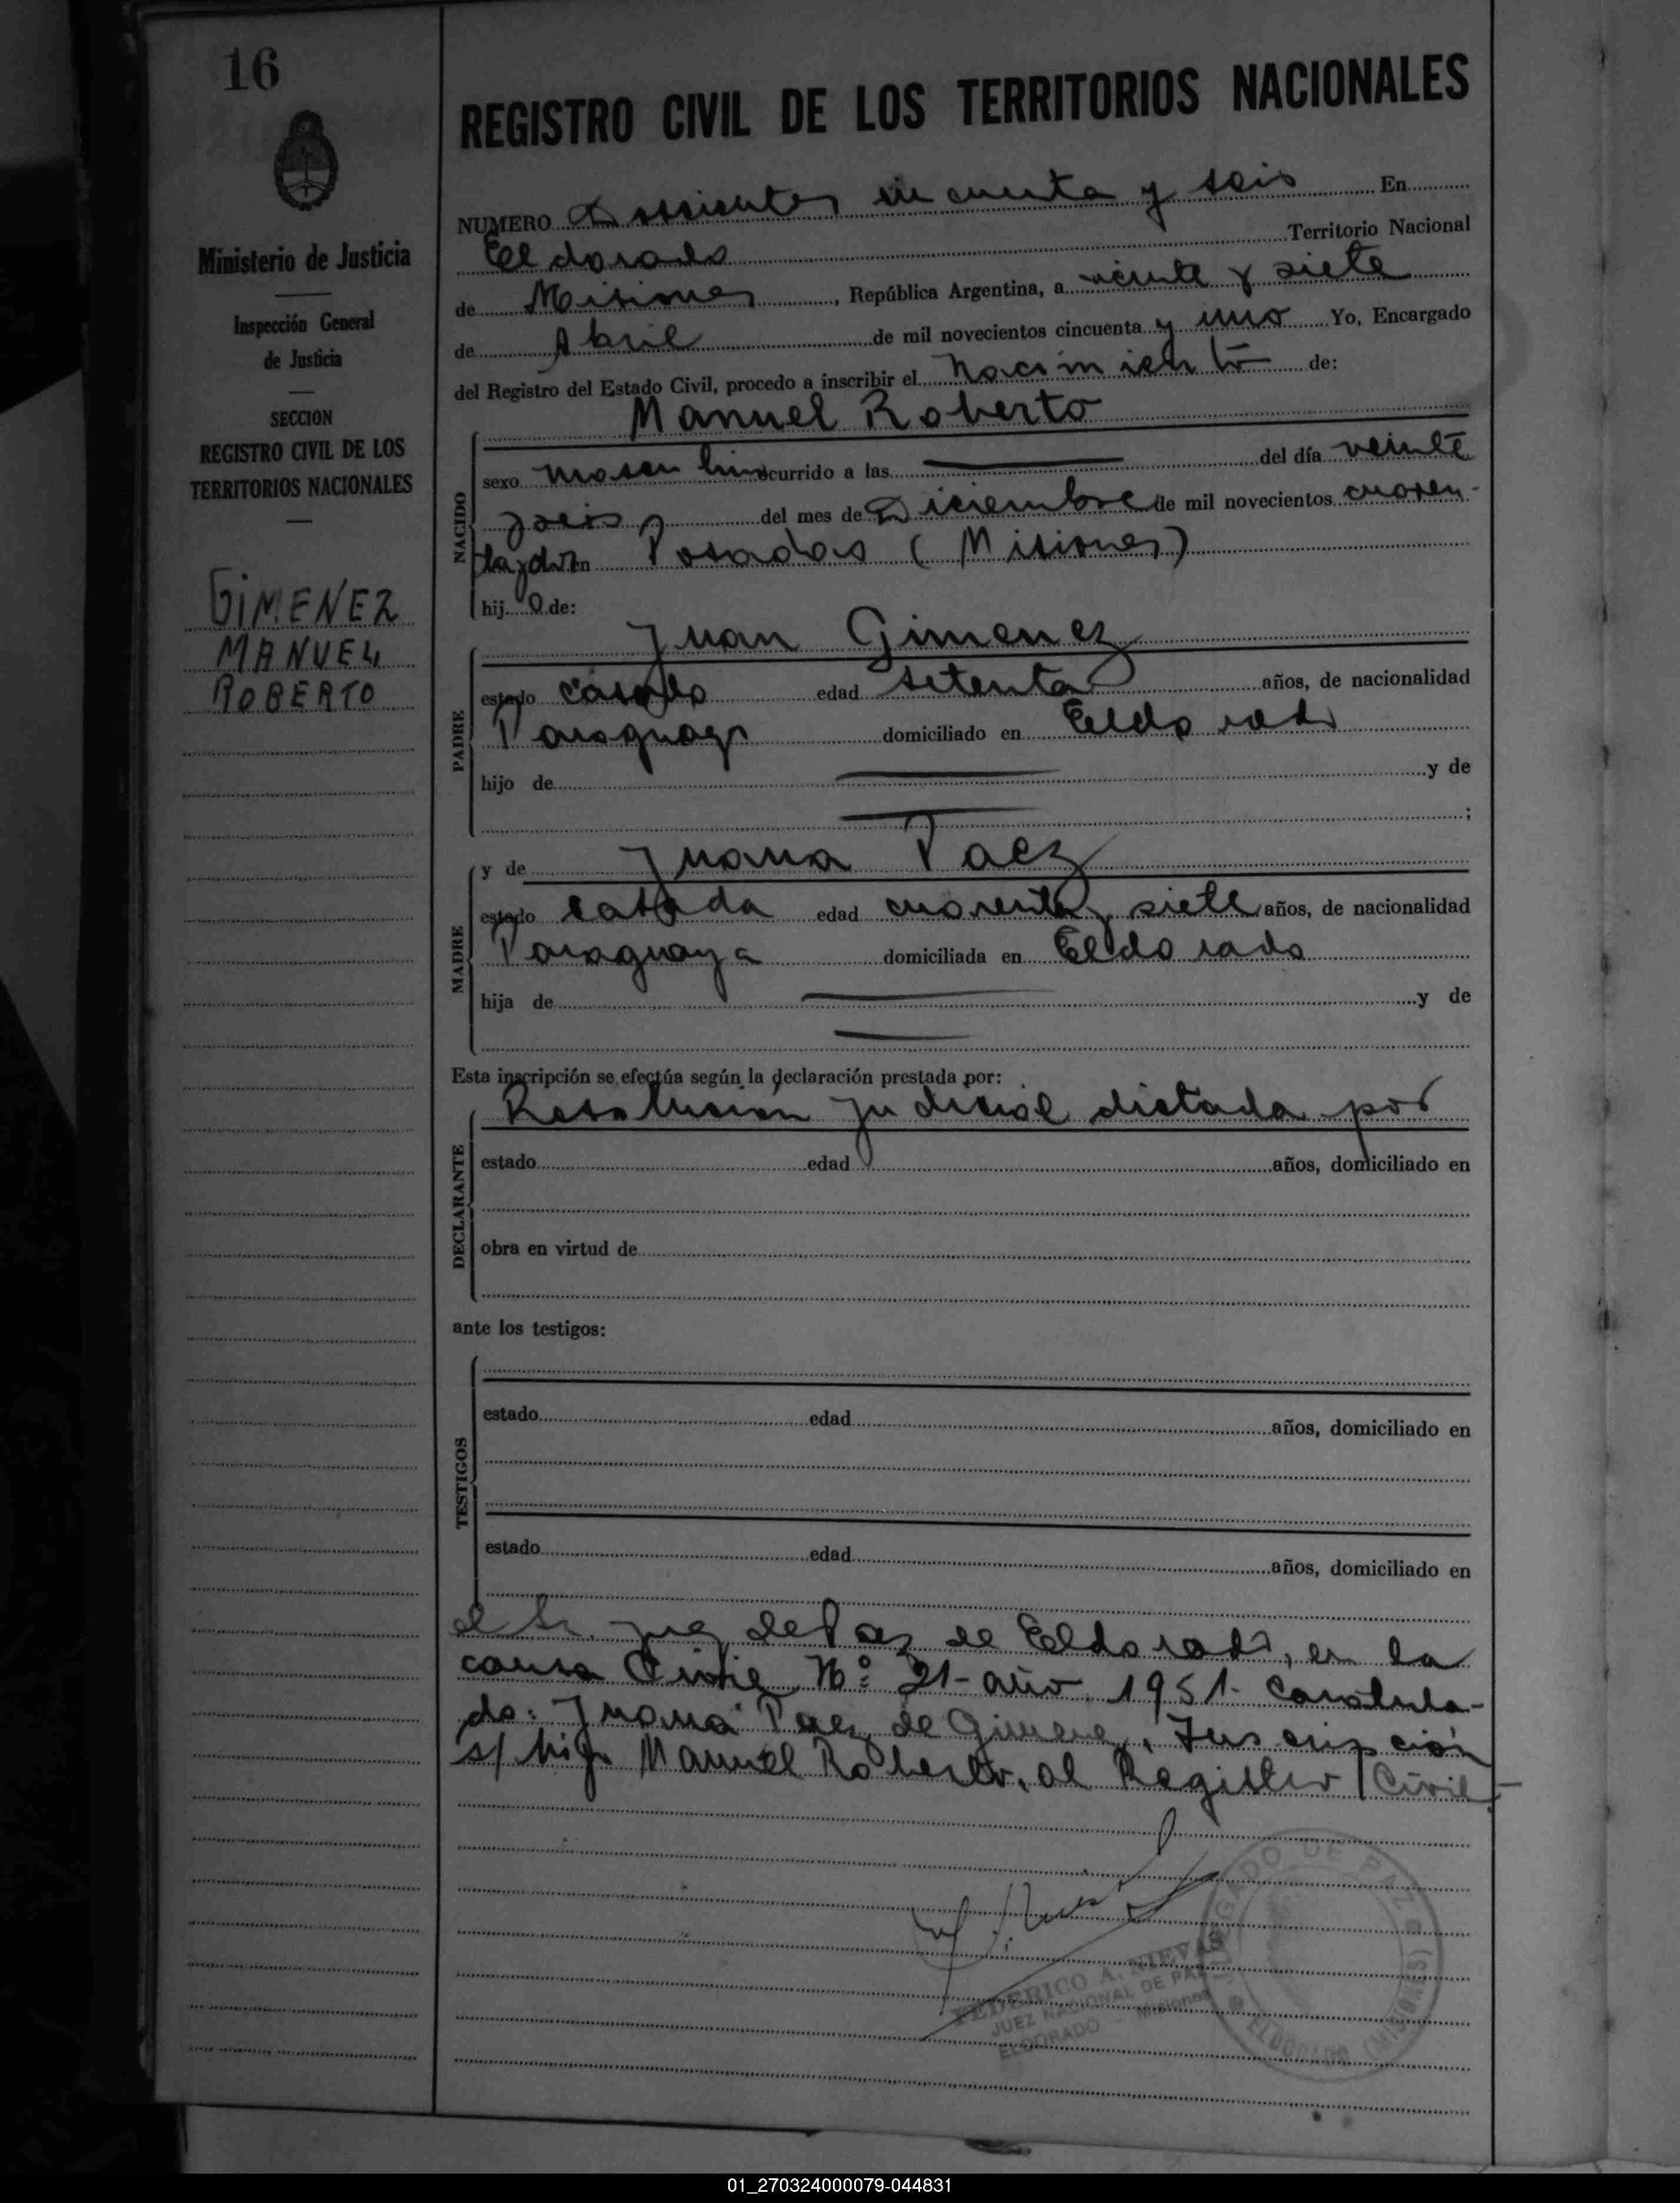 16
Ministerio de Justicia
Inspección General
de Justicia
SECCION
REGISTRO CIVIL DE LOS
TERRITORIOS NACIONALES
GIMENEZ
MANUEL
ROBERTO
REGISTRO CIVIL DE LOS TERRITORIOS NACIONALES
NUMERO Dossientos cincuenta y seis En
Eldorado Territorio Nacional
de Misiones, República Argentina, a veinte y siete
de Abril de mil novecientos cincuenta y uno Yo, Encargado
del Registro del Estado Civil, procedo a inscribir el Nacimiento de:
Manuel Roberto
NACIDO
sexo masculino ocurrido a las del día veinte
y seis del mes de Diciembre de mil novecientos cuaren-
ta y dos en Posadas (Misiones)
hijo de:
Juan Gimenez
PADRE
estado casado edad setenta años, de nacionalidad
Paraguayo domiciliado en Eldorado
hijo de y de
;
y de Juana Paez
MADRE
estado casada edad cuarenta y siete años, de nacionalidad
Paraguaya domiciliada en Eldorado
hija de y de
Esta inscripción se efectúa según la declaración prestada por:
Resolucion judicial dictada por
DECLARANTE
estado edad años, domiciliado en
obra en virtud de
ante los testigos:
TESTIGOS
estado edad años, domiciliado en
estado edad años, domiciliado en
el Sr. Juez de Paz de Eldorado, en la
causa Civil Nº: 21- año 1951. Caratula-
do: Juana Paez de Gimenez, Inscripción
s/ hijo Manuel Roberto, al Registro Civil.-
FEDERICO A. NIEVAS
JUEZ NACIONAL DE PAZ
ELDORADO - Misiones
JUZGADO DE PAZ
ELDORADO (MISIONES)
01_270324000079-044831